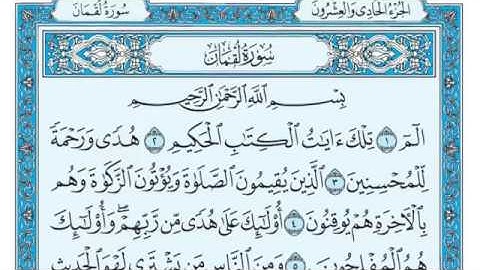 الجزء الحادي والعشرون
سورة لقمان
سُورَةُ لُقْمَانَ
بِسْمِ اللَّهِ الرَّحْمَٰنِ الرَّحِيمِ
الٓمٓ ١ تِلْكَ ءَايَٰتُ الْكِتَٰبِ الْحَكِيمِ ٢ هُدًى وَرَحْمَةً
لِّلْمُحْسِنِينَ ٣ الَّذِينَ يُقِيمُونَ الصَّلَوٰةَ وَيُؤْتُونَ الزَّكَوٰةَ وَهُم
بِالْءَاخِرَةِ هُمْ يُوقِنُونَ ٤ أُوْلَٰٓئِكَ عَلَىٰ هُدًى مِّن رَّبِّهِمْ ۖ وَأُوْلَٰٓئِكَ
هُمُ الْمُفْلِحُونَ ٥ وَمِنَ النَّاسِ مَن يَشْتَرِى لَهْوَ الْحَدِيثِ